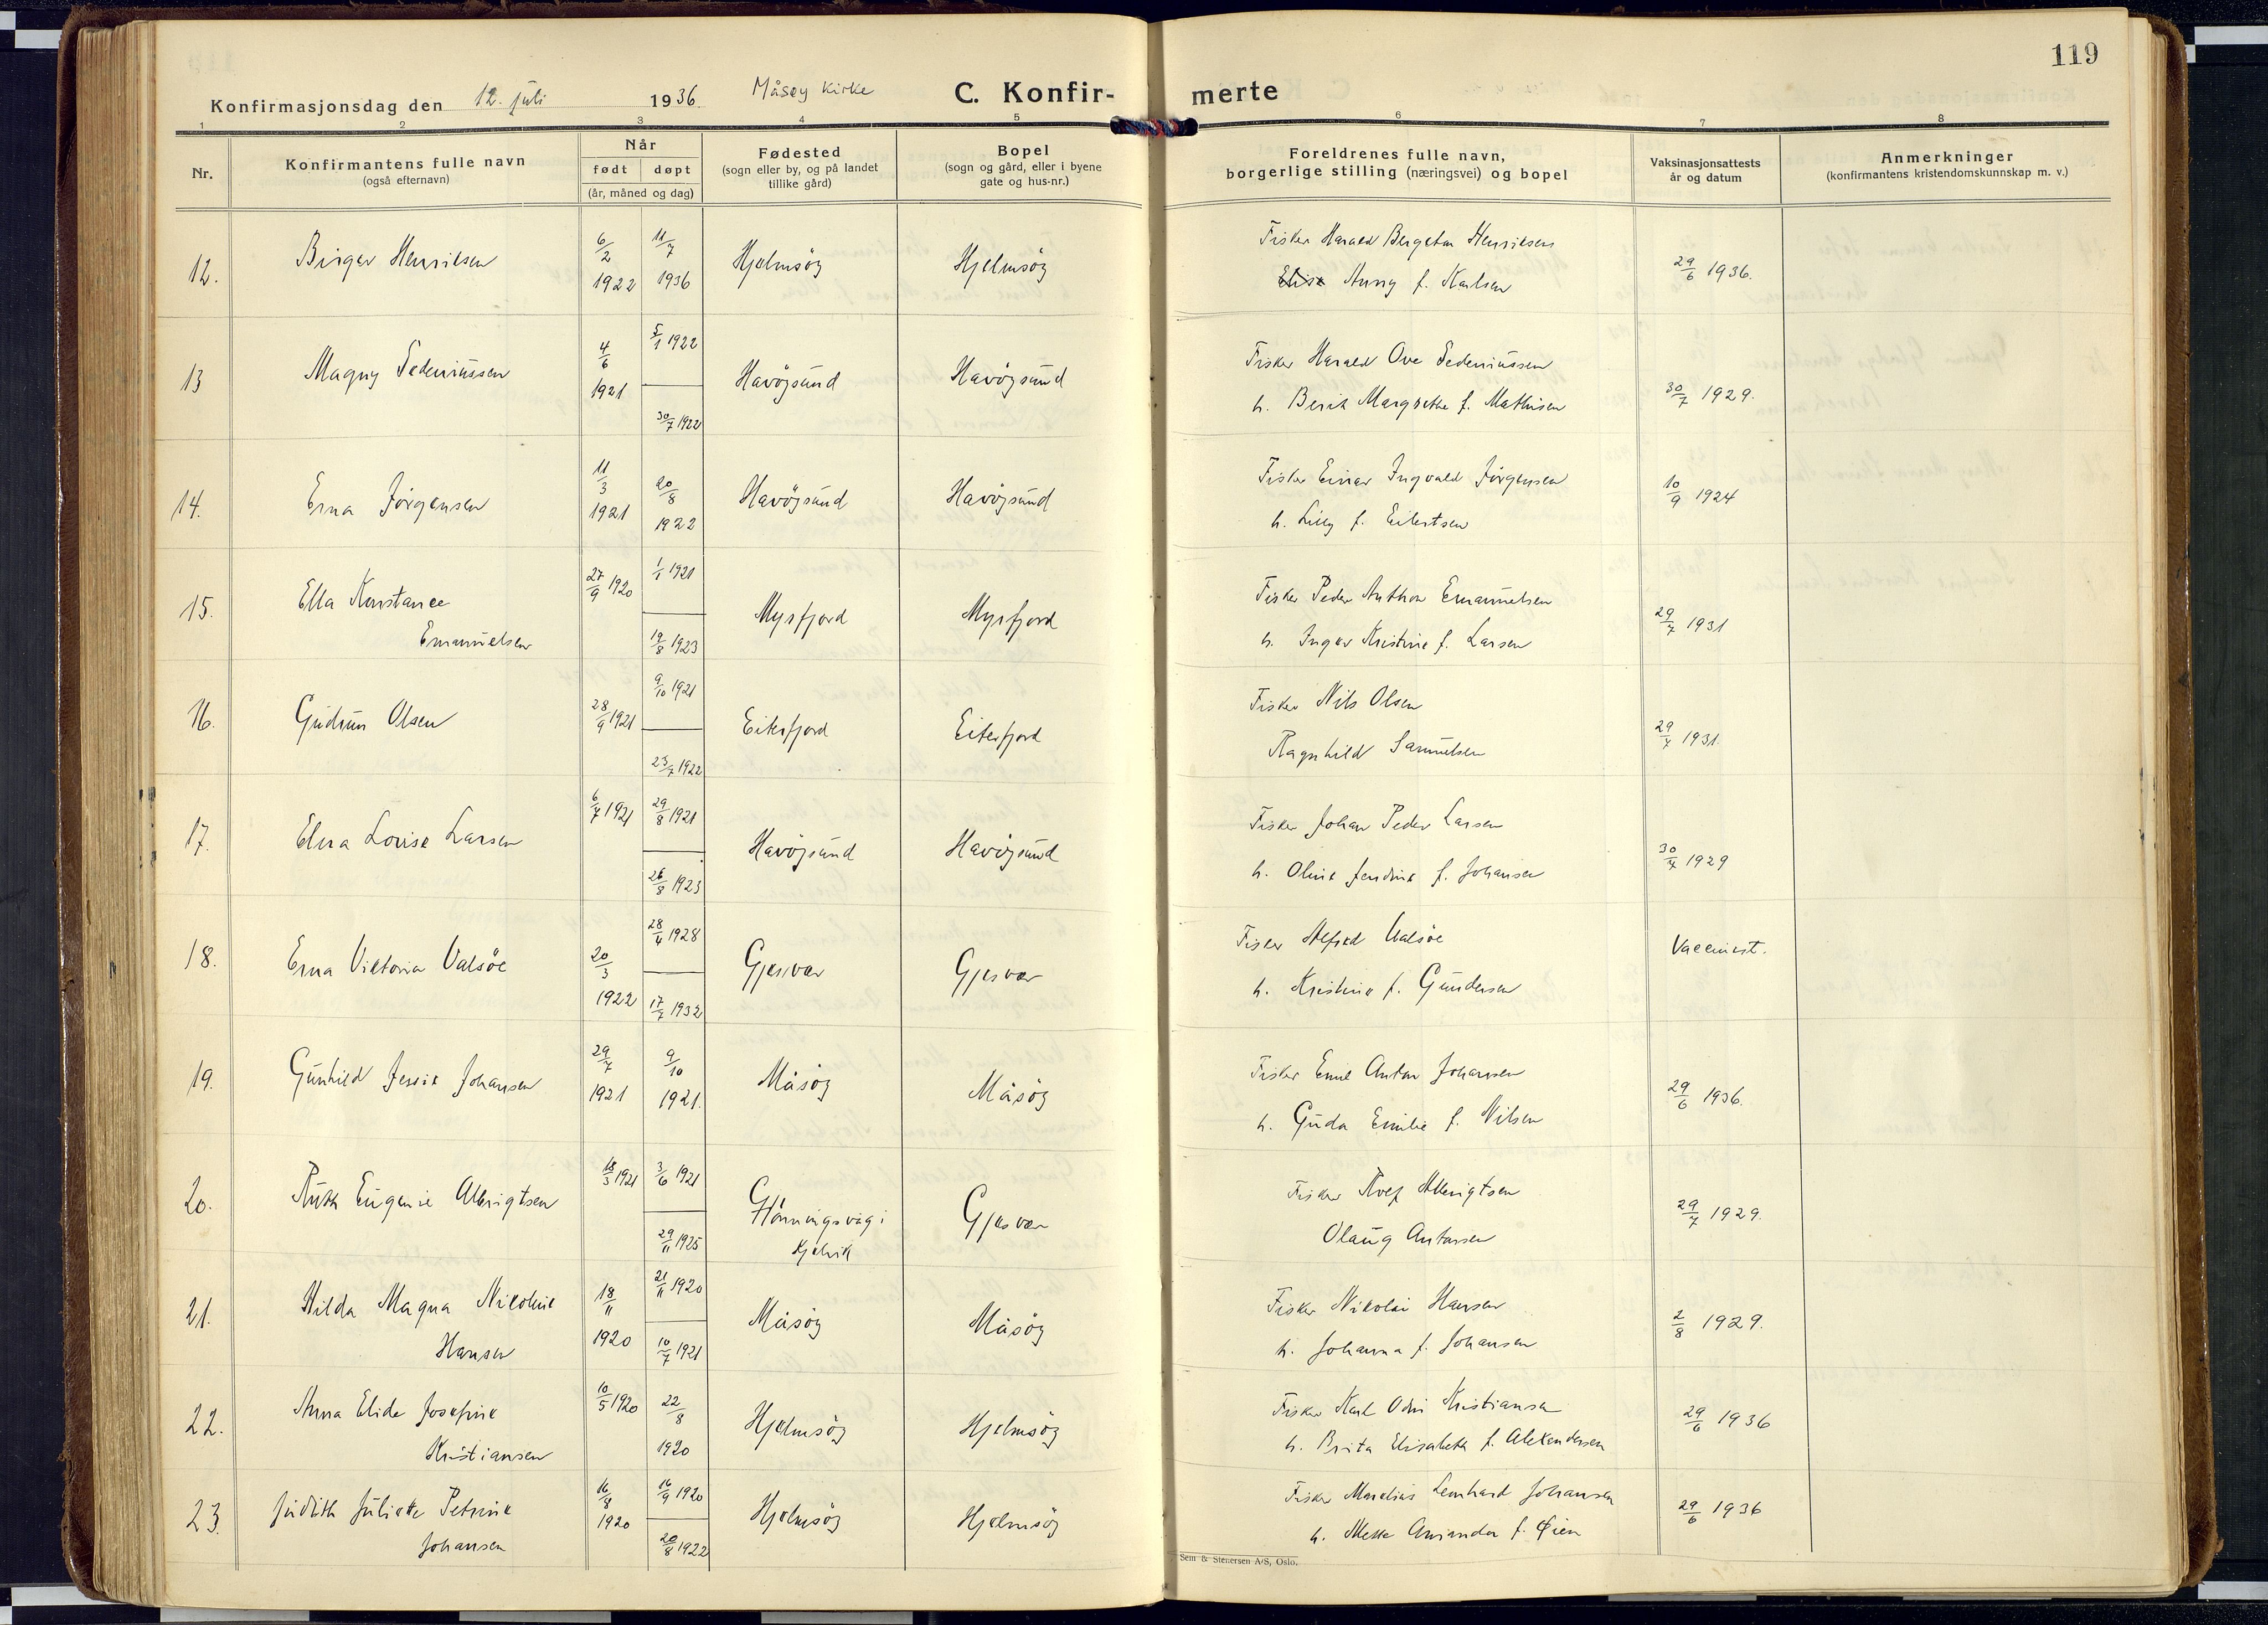 119
Konfirmasjonsdag den 12. juli 1936. Måsøy Kirke C. Konfir- merte
1 2 3 4 5 6 7 8
Nr. Konfirmantens fulle navn (også efternavn) Når født døpt (år, måned og dag) Fødested (sogn eller by, og på landet tillike gård) Bopel (sogn og gård, eller i byene gate og hus-nr.) Foreldrenes fulle navn, borgerlige stilling (næringsvei) og bopel Vaksinasjonsattests år og datum Anmerkninger (konfirmantens kristendomskunnskap m. v.)
12. Birger Henriksen 6/2 1922 11/7 1936 Hjelmsöy Hjelmsöy Fisker Harald Bergeton Henriksen 29/6 1936.
Elise Anny f. Karlsen
13 Magny Pedersen 4/6 1921 5/1 1922 30/7 1922 Havöysund Havöysund Fisker Harald Ove 30/7 1929.
h. Berit Margrethe f. Mathisen
14. Erna Jörgensen 11/3 1921 20/8 1922 Havöysund Havöysund Fisker Einar Ingvald Jörgensen 10/9 1924
h. Lilly f. Eilertsen
15. Ella Konstance 27/9 1920 1/1 1921 19/8 1923 Myrfjord Myrfjord Fisker Peder Anthon Emanuelsen 29/7 1931
Emanuelsen h. Inger Kristine f. Larsen
16. Gudrun Olsen 28/9 1921 9/10 1921 23/7 1922 Eiterfjord Eiterfjord Fisker Nils Olsen 29/7 1931.
Ragnhild Samuelsen
17. Elna Lovise Larsen 6/7 1921 29/8 1921 26/8 1923 Havöysund Havöysund Fisker Johan Peder Larsen 30/7 1929
h. Oline Jendine f. Johansen
18. Erna Viktoria Valsöe 20/3 1922 28/4 1928 17/7 1932 Gjesvær Gjesvær Fisker Alfred Valsöe Vaccinert.
h. Kristine f. Gundersen
19. Gunhild Jessie Johansen 29/7 1921 9/10 1921. Måsöy Måsöy Fisker Emil Anton Johansen 29/6 1936.
h. Guda Emilie f. Nilsen
20. Ruth Eugenie Albrigtsen 18/3 1921 3/6 1921 29/11 1925 Honningsvåg i Kjelvik Gjesvær Fisker Rolf Albrigtsen 29/7 1929.
Olaug Antonsen
21. Hilda Magna Nikoline 18/11 1920 21/11 1920 10/7 1921 Måsöy Måsöy Fisker Nikolai Hansen 2/8 1929.
Hansen h. Johanna f. Johansen
22. Anna Elide Josefine 10/5 1920 22/8 1920 Hjelmsöy Hjelmsöy Fisker Karl Odin Kristiansen 29/6 1936
Kristiansen h. Brita Elisabeth f. Alexandersen
23. Judith Juliette Petrine 16/8 1920 16/9 1920 20/8 1922 Hjelmsöy Hjelmsöy Fisker Marelius Leonhard Johansen 29/6 1936
Johansen h. Mette Amanda f. Øien
Sem & Stenersen A/S, Oslo.